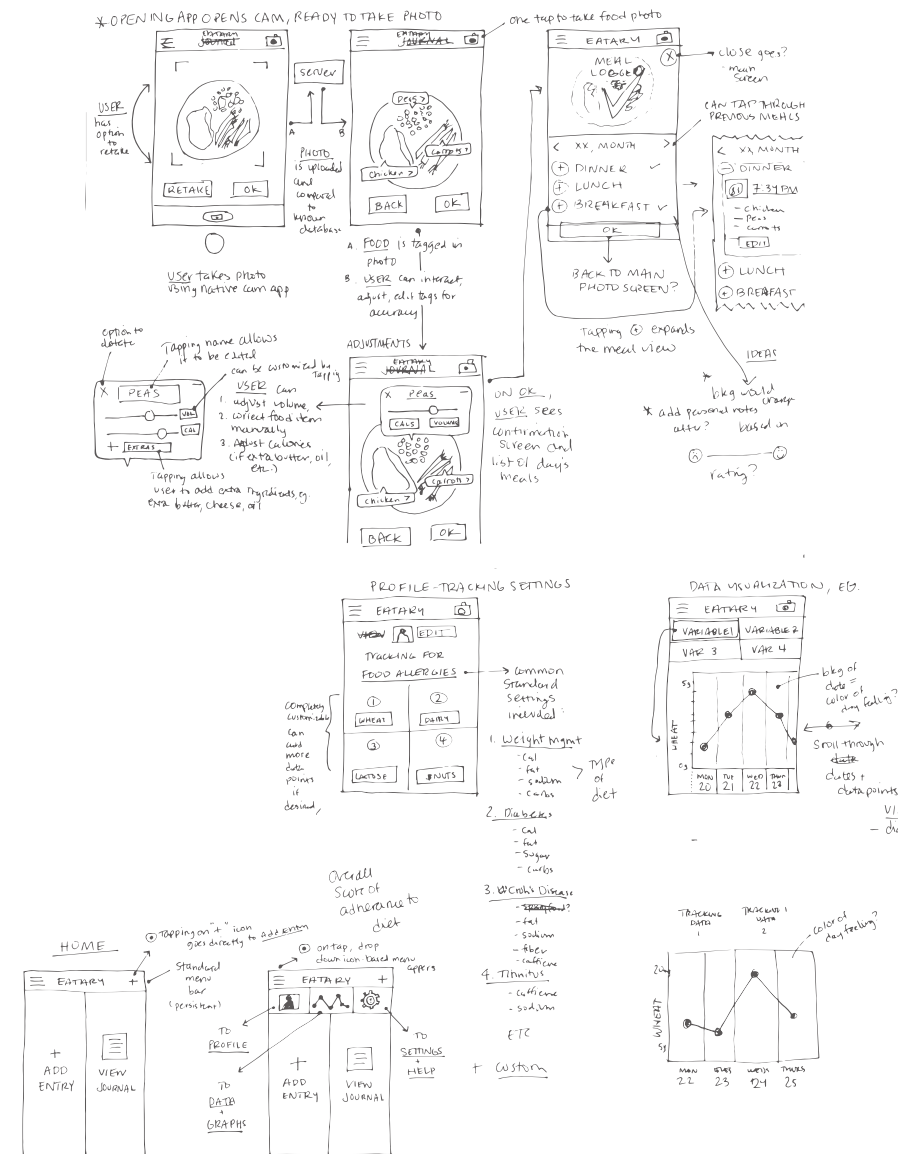 * OPENING APP OPENS CAM, READY TO TAKE PHOTO
EATARY
JOURNAL
USER
has
option
to retake
RETAKE
OK
User takes photo
using native cam app
SERVER
A
B
PHOTO
is uploaded
and
compared
to
known
database
one tap to take food photo
EATARY
JOURNAL
Peas >
Carrots >
Chicken >
BACK
OK
A. FOOD is tagged in
photo
B. USER can interact,
adjust, edit tags for
accuracy
EATARY
MEAL
LOGGED
X
close goes?
- main
screen
CAN TAP THROUGH
PREVIOUS MEALS
< XX, MONTH >
+ DINNER ✓
+ LUNCH
+ BREAKFAST ✓
OK
BACK TO MAIN
PHOTO SCREEN?
Tapping + expands
the meal view
< XX, MONTH
- DINNER
7:34 PM
- Chicken
- Peas
- Carrots
EDIT
+ LUNCH
+ BREAFAST
IDEAS
* bkg could
change
based on
* add personal notes
after?
rating?
option to
delete
Tapping name allows
it to be edited
can be customized by
tapping
X PEAS
VOL
CAL
+ EXTRAS
Tapping allows
user to add extra ingredients, eg.
extra butter, cheese, oil
USER can
1. adjust volume,
2. correct food item
manually
3. Adjust calories
(if extra butter, oil,
etc.)
ADJUSTMENTS
EATARY
JOURNAL
X Peas -
CALS
VOLUME
Carrots >
Chicken >
BACK
OK
ON OK,
USER sees
confirmation
screen and
list of day's
meals
PROFILE-TRACKING SETTINGS
EATARY
VIEW
EDIT
TRACKING FOR
FOOD ALLERGIES
1
WHEAT
2
DAIRY
3
LACTOSE
4
NUTS
completely
customizable
can
add
more
data
points
if
desired,
common
standard
settings
included:
1. Weight mgmt
- cal
- fat
- sodium
- carbs
TYPE
of
diet
2. Diabetes
- cal
- fat
- sugar
- carbs
3. Crohn's Disease
- fat
- sodium
- fiber
- caffeine
4. Tinnitus
- caffeine
- sodium
ETC
+ custom
DATA VISUALIZATION, EG.
EATARY
VARIABLE 1
VARIABLE 2
VAR 3
VAR 4
5g
WHEAT
0g
MON
20
TUE
21
WED
22
THUR
23
bkg of
date =
color of
day feeling?
Scroll through
data
dates +
data points
Overall
Score of
adherance to
diet
HOME
Tapping on "+" icon
goes directly to add entry
EATARY +
Standard
menu
bar
(persistent)
+
ADD
ENTRY
VIEW
JOURNAL
on tap, drop
down icon-based menu
appears
EATARY +
TO
PROFILE
TO
DATA
+
GRAPHS
TO
SETTINGS
+
HELP
+
ADD
ENTRY
VIEW
JOURNAL
TRACKING
DATA
1
TRACKING
DATA
2
color of
day feeling?
WHEAT
5g
MON
22
TUES
23
WEDS
24
THURS
25